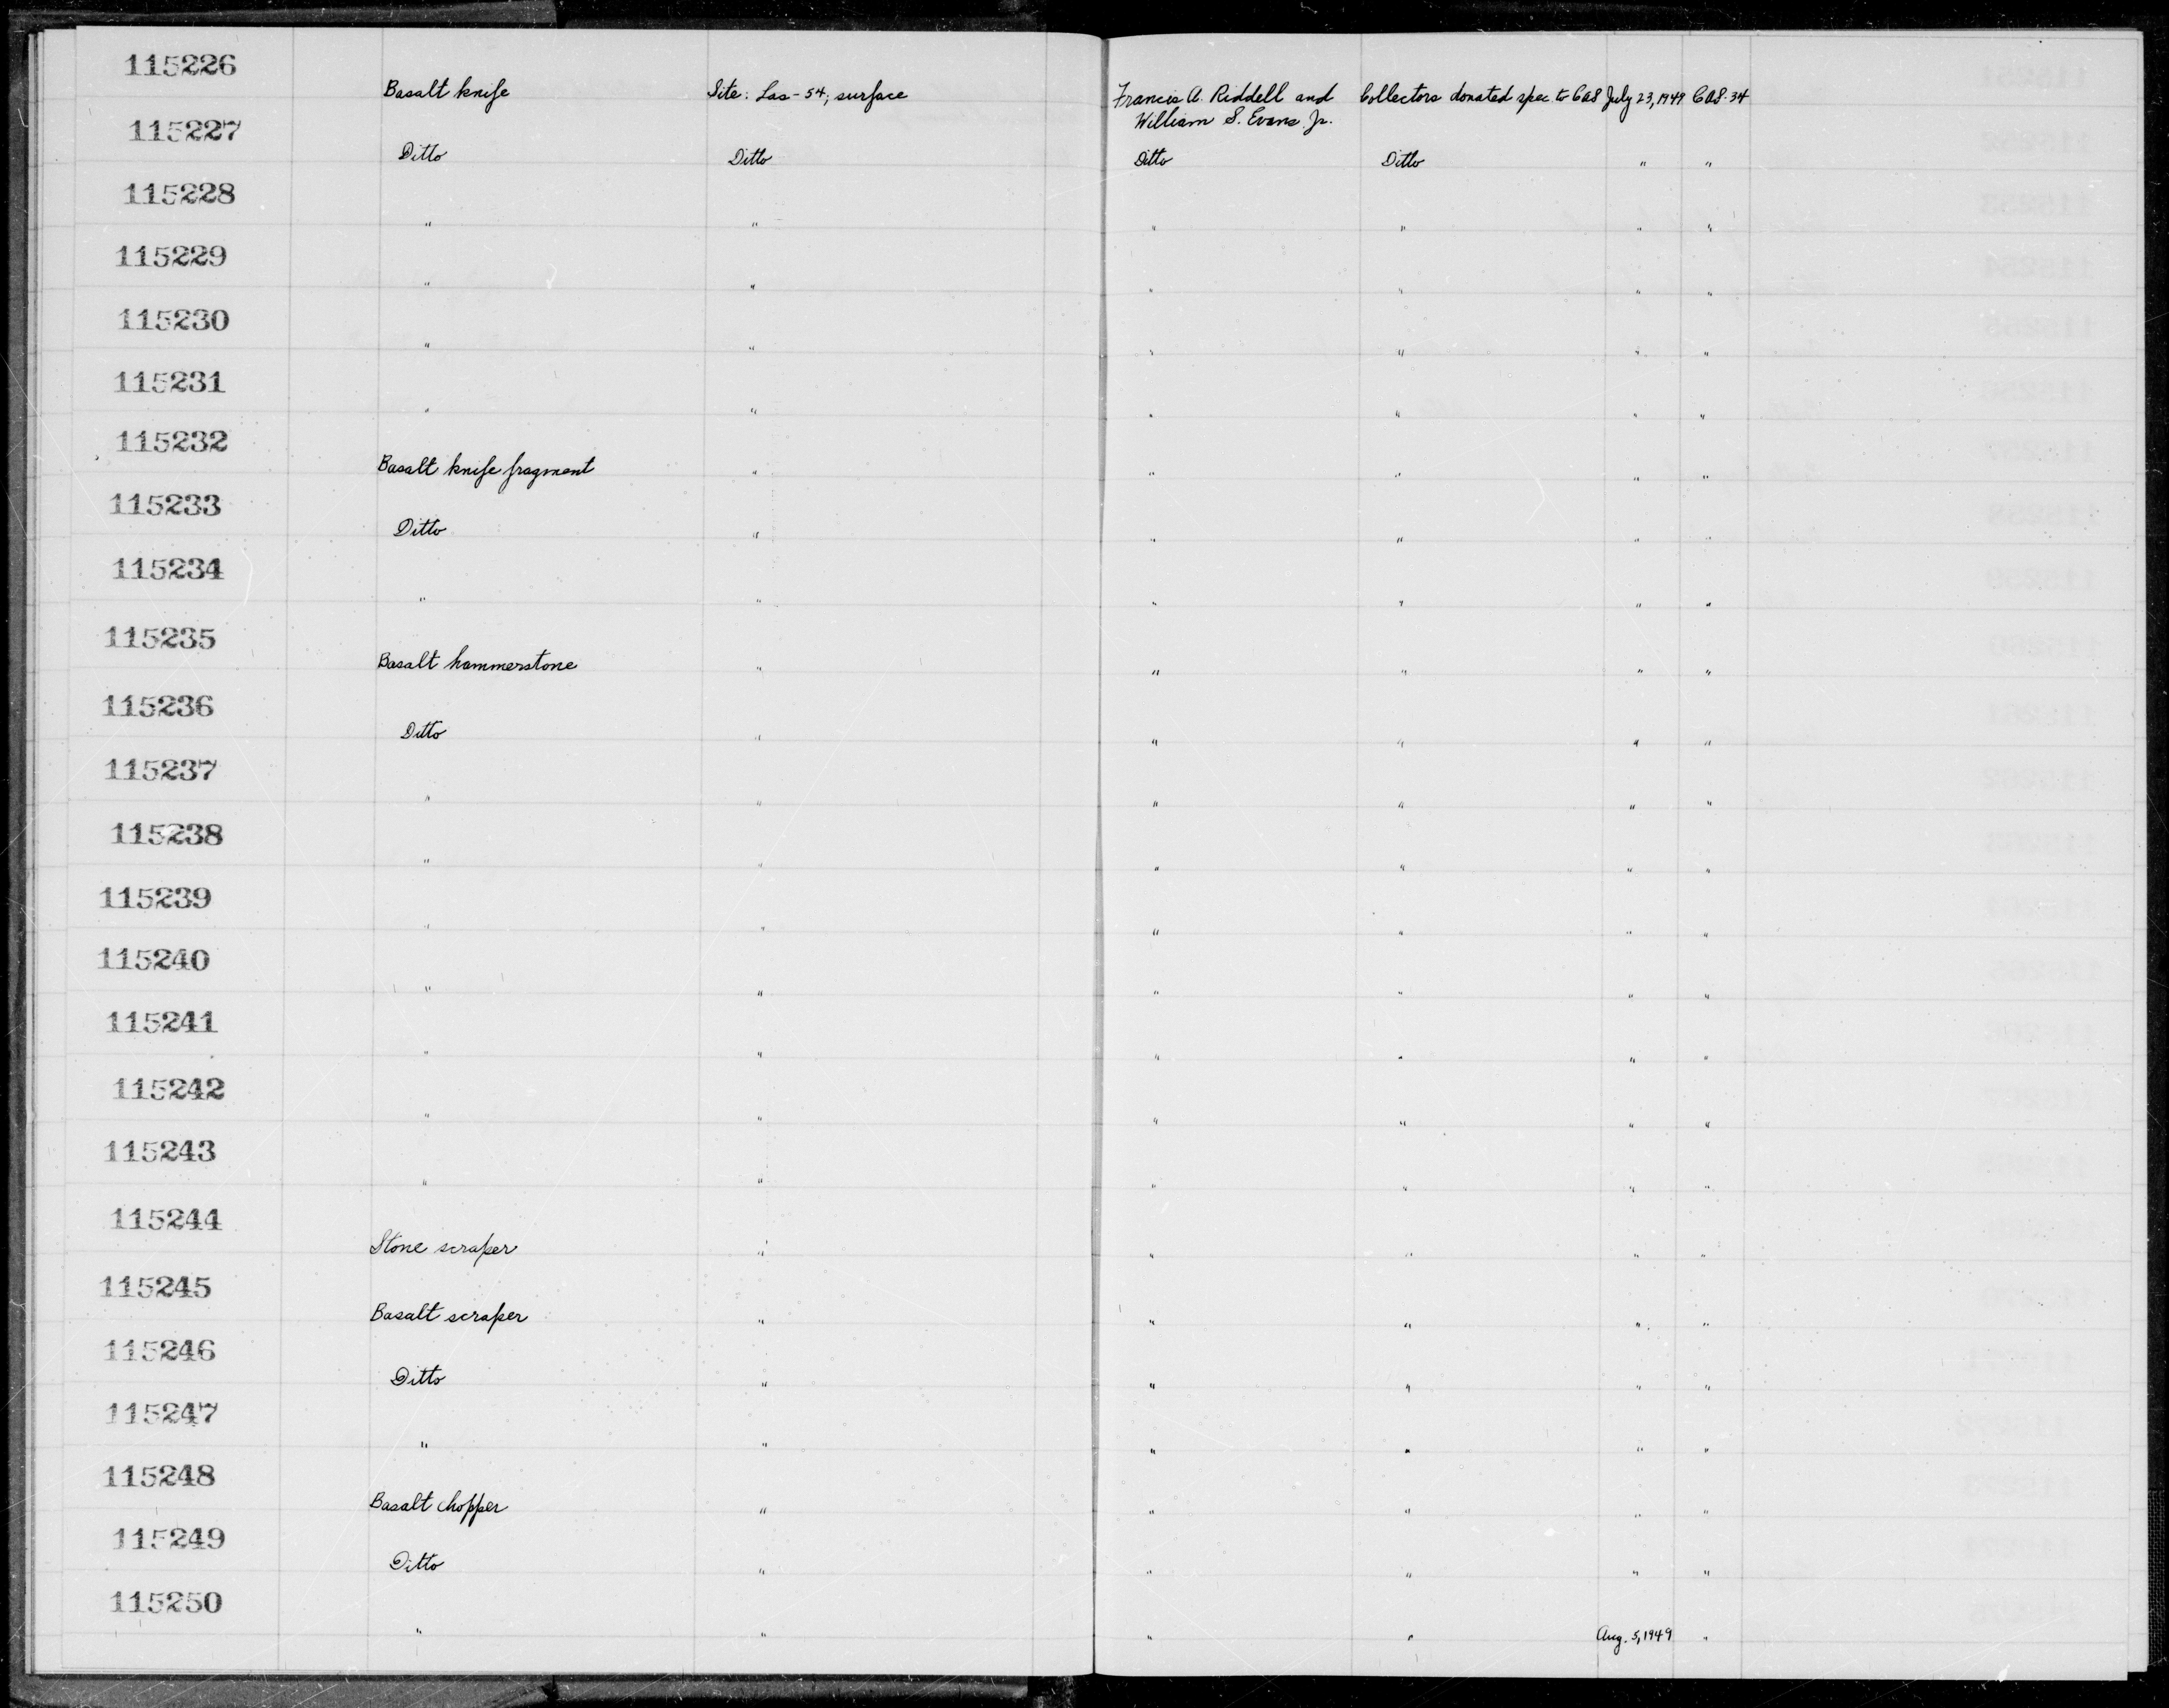 115226
Basalt knife Site: Las-54; surface Francis A. Riddell and Collectors donated spec. to CAS July 23, 1949 CAS-34
William S. Evans Jr.
115227
Ditto Ditto Ditto Ditto " "
115228
" " " " " "
115229
" " " " " "
115230
" " " " " "
115231
" " " " " "
115232
Basalt knife fragment " " " " "
115233
Ditto " " " " "
115234
" " " " " "
115235
Basalt hammerstone " " " " "
115236
Ditto " " " " "
115237
" " " " " "
115238
" " " " " "
115239
" " " " " "
115240
" " " " " "
115241
" " " " " "
115242
" " " " " "
115243
" " " " " "
115244
Stone scraper " " " " "
115245
Basalt scraper " " " " "
115246
Ditto " " " " "
115247
" " " " " "
115248
Basalt chopper " " " " "
115249
Ditto " " " " "
115250
" " " " Aug. 5, 1949 "